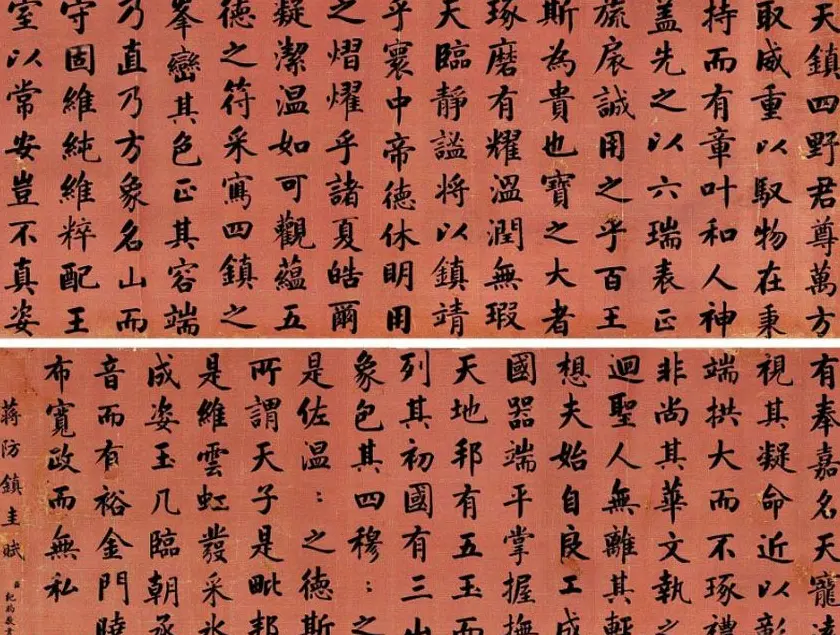 天鎮四野君尊萬方
取威重以馭物在秉
持而有章叶和人神
蓋先之以六瑞表正
旒扆誠用之乎百王
斯為貴也寶之大者
琢磨有耀溫潤無瑕
天臨靜謐將以鎮靖
乎寰中帝德休明用
之熠耀乎諸夏皓爾
凝潔溫如可觀蘊五
德之符采寫四鎮之
峯巒其色正其容端
乃直乃方象名山而
守固維純維粹配王
室以常安豈不真姿
有奉嘉名天寵
視其凝命近以彰
端拱大而不琢禮
非尚其華文執之
迴聖人無離其輕
想夫始自良工成
國器端平掌握撫
天地邦有五玉而
列其初國有三山
象包其四穆:之
是佐溫:之德斯
所謂天子是毗邦
是維雲虹發采冰
成姿玉几臨朝承
音而有裕金門曉
布寬政而無私
蔣防鎮圭賦
紀昀敬書